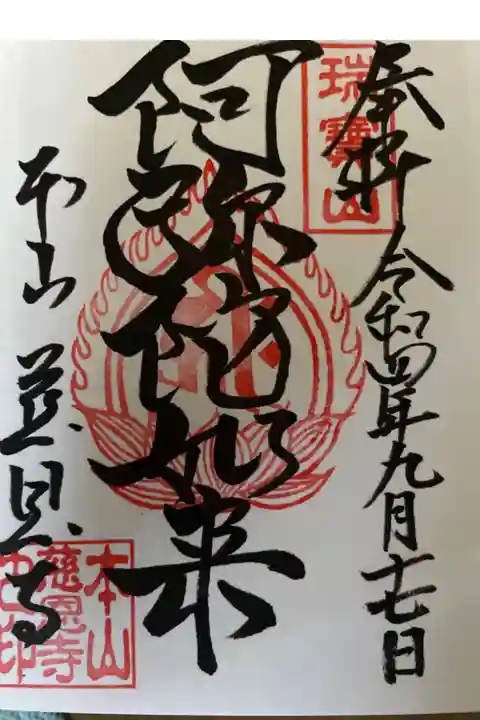 奉拝 令和四年九月十七日
瑞寶山
阿弥陀如来
本山 慈恩寺
本山
慈恩寺
之印